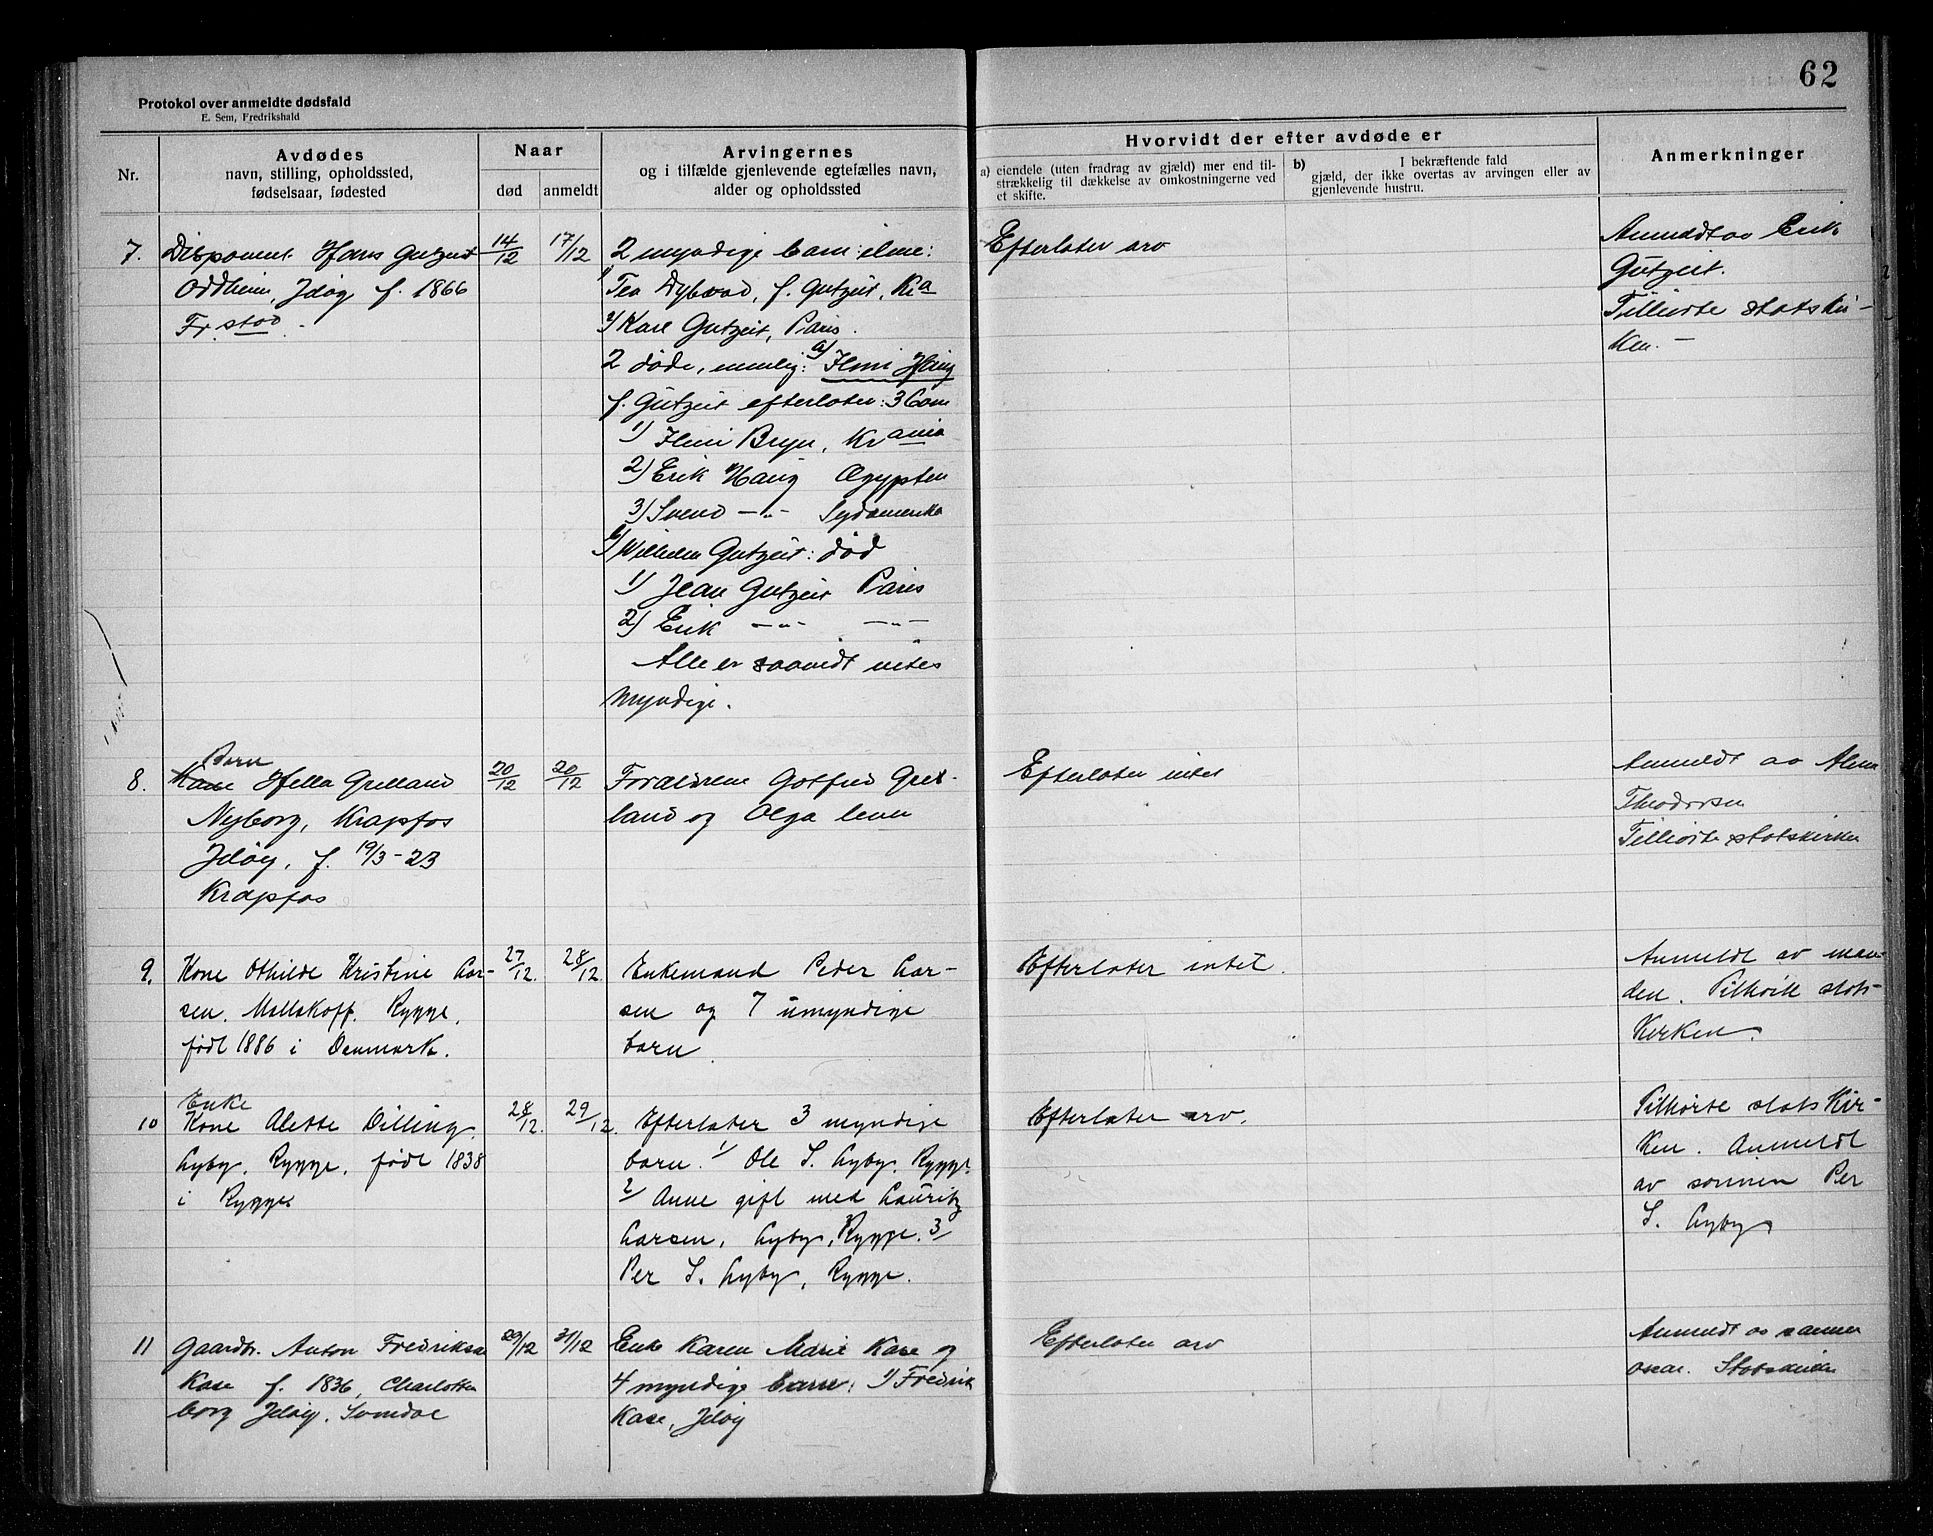 62
Protokol over anmeldte dødsfald
E. Sem, Fredrikshald
Nr.
Avdødes
navn, stilling, opholdssted,
fødselsaar, fødested
Naar
død
anmeldt
Arvingernes
og i tilfælde gjenlevende egtefælles navn,
alder og opholdssted
Hvorvidt der efter avdøde er
a) eiendele (uten fradrag av gjæld) mer end til-
strækkelig til dækkelse av omkostningerne ved
et skifte.
b) I bekræftende fald
gjæld, der ikke overtas av arvingen eller av
gjenlevende hustru.
Anmerkninger
7.
Disponent Hans Gutzeit
Oddheim, Jeløy f. 1866
Fr.stad.
14/12
17/12
2 myndige barn:
1/ Tea Dybwad, f. Gutzeit, Kr.a
2/ Karl Gutzeit, Paris.
2 døde, nemlig: a/
f. Gutzeit efterlater: 3 barn
1) Bryn, Krania
2) Erik Haug Ægypten
3) Svend —"— Sydamerika
b/ Wilhelm Gutzeit: død
1) Jean Gutzeit Paris
2) Erik —"— —"—
Alle er saavidt vites
myndige.
Efterlater arv
Anmeldt av Erik
Gutzeit.
Tilhørte statskir-
ken. —
8.
Barn
Hella Grelland
Nyborg, Krapfos
Jeløy, f. 19/3-23
Krapfos
20/12
20/12
Forældrene Gotfred Grel-
land og Olga lever
Efterlater intet
Anmeldt av
Theodorsen
Tilhørte statskirken
9.
Kone Othilde Kristine Lar-
sen. Mallakoff. Rygge,
født 1886 i Danmark.
27/12.
28/12.
Enkemand Peder Lar-
sen og 7 umyndige
barn.
Efterlater intet.
Anmeldt av man-
den. Tilhørte stats-
kirken.
10
Enke
Kone Alette Dilling,
Lyby, Rygge, født 1838
i Rygge.
28/12.
29/12.
Efterlater 3 myndige
barn. 1/ Ole S. Lyby, Rygge.
2/ Anne gift med Lauritz
Larsen, Lyby, Rygge. 3/
Per S. Lyby, Rygge.
Efterlater arv.
Tilhørte statskir-
ken. Anmeldt
av sønnen Per
S. Lyby
11
Gaardbr. Anton Fredriksen
Kase f. 1836, Charlotten
borg Jeløy.
29/12
31/12
Enke Karen Marie Kase og
4 myndige barn: 1) Fredrik
Kase, Jeløy
Efterlater arv
Anmeldt av sønnen
Oscar. Statskirken